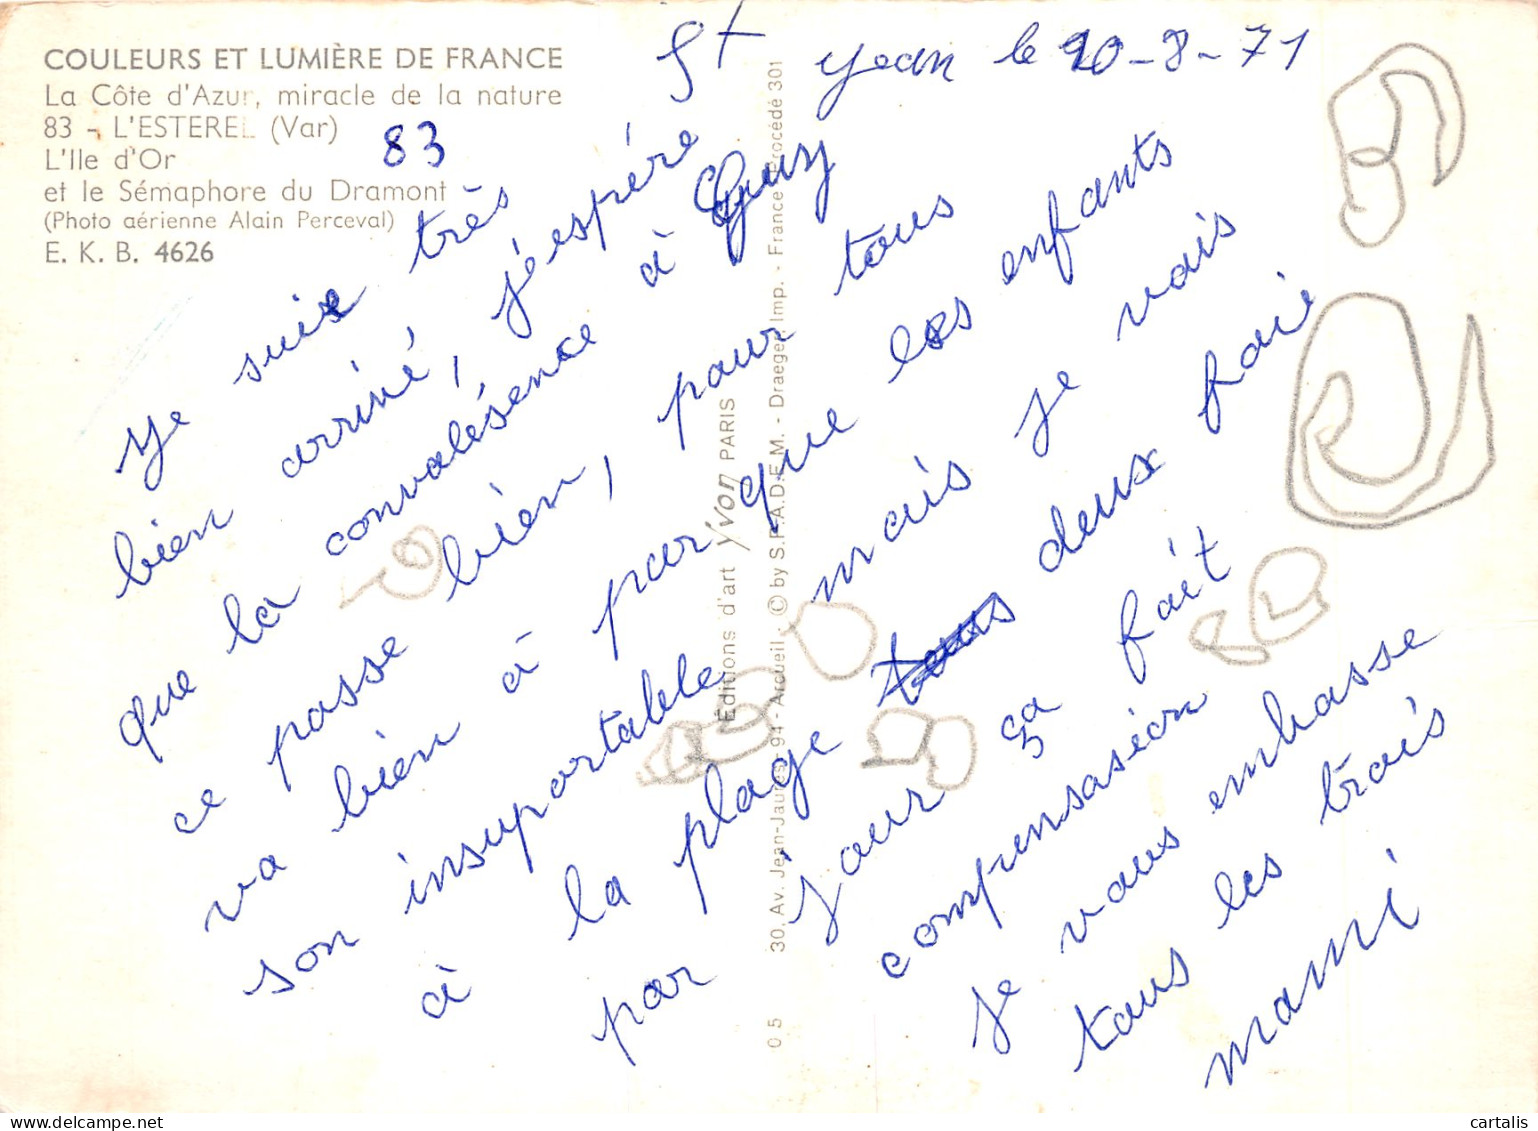 COULEURS ET LUMIÈRE DE FRANCE
La Côte d'Azur, miracle de la nature
83 - L'ESTEREL (Var)
L'Ile d'Or
et le Sémaphore du Dramont
(Photo aérienne Alain Perceval)
E. K. B. 4626
83
St Jean le 20-8-71
Je suis très
bien arrivé, j'espére
que la convalésence à Guy
ce passe bien, pour tous
va bien à par que les enfants
son insuportable mais je vais
à la plage tous deux fois
par jour ça fait
compensasion
je vous embrasse
tous les trois
mami
05 30, Av. Jean-Jaurès - 94 - Arcueil - © by S.P.A.D.E.M. - Draeger Imp. - France Procédé 301
Éditions d'art Yvon PARIS
cartalis